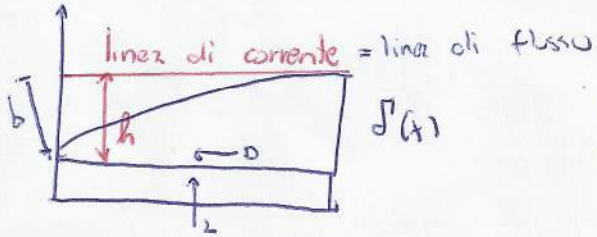 linea di corrente = linea di flusso
b
h
δ(x)
D
L